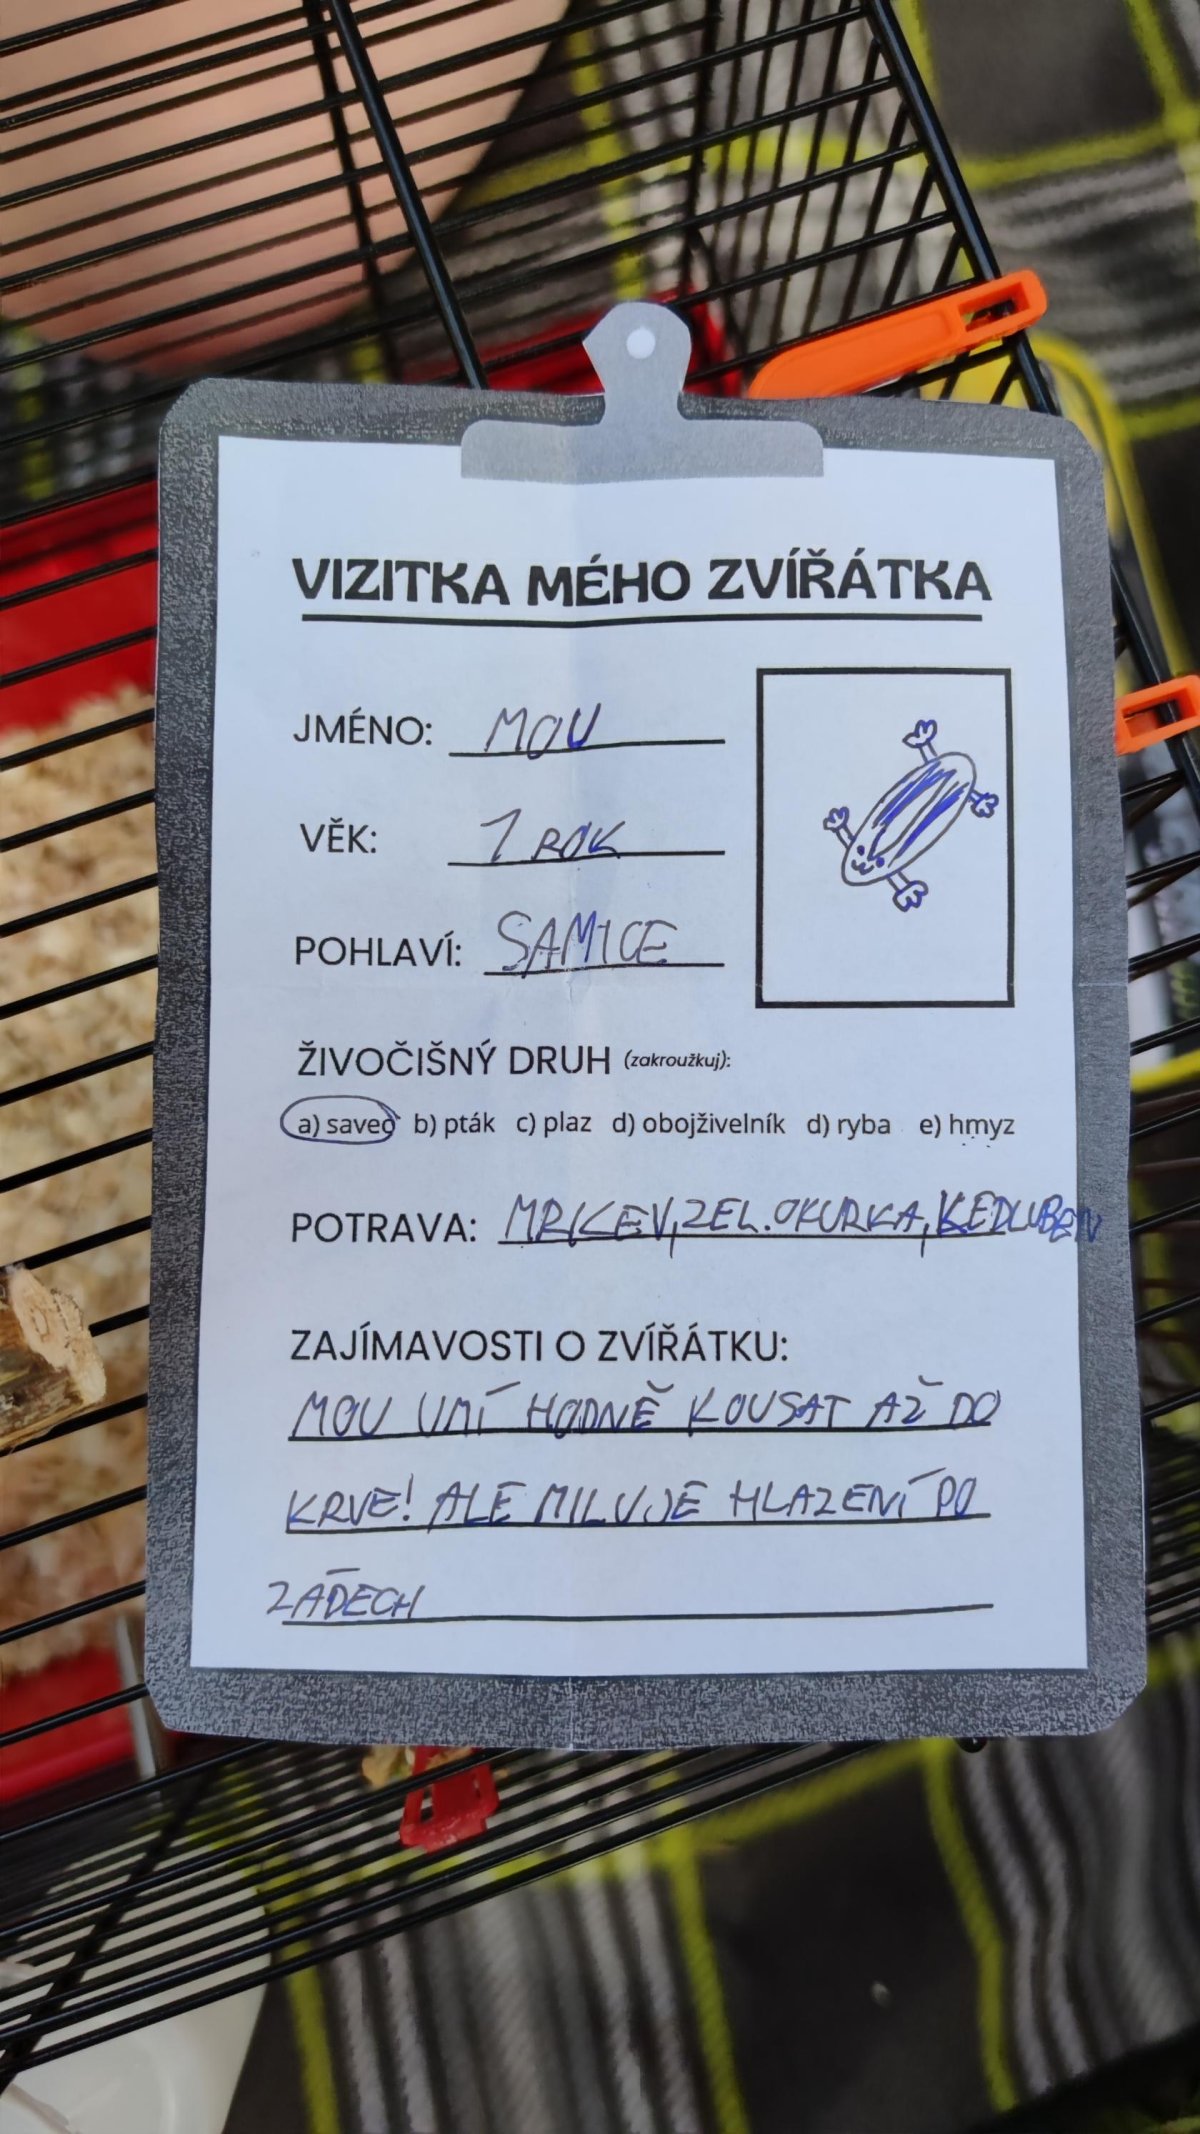 VIZITKA MÉHO ZVÍŘÁTKA
JMÉNO: MOU
VĚK: 1 ROK
POHLAVÍ: SAMICE
ŽIVOČIŠNÝ DRUH (zakroužkuj):
a) savec b) pták c) plaz d) obojživelník d) ryba e) hmyz
POTRAVA: MRKEV, ZEL. OKURKA, KEDLUBEN
ZAJÍMAVOSTI O ZVÍŘÁTKU:
MOU UMÍ HODNĚ KOUSAT AŽ DO
KRVE! ALE MILUJE HLAZENÍ PO
ZÁDECH